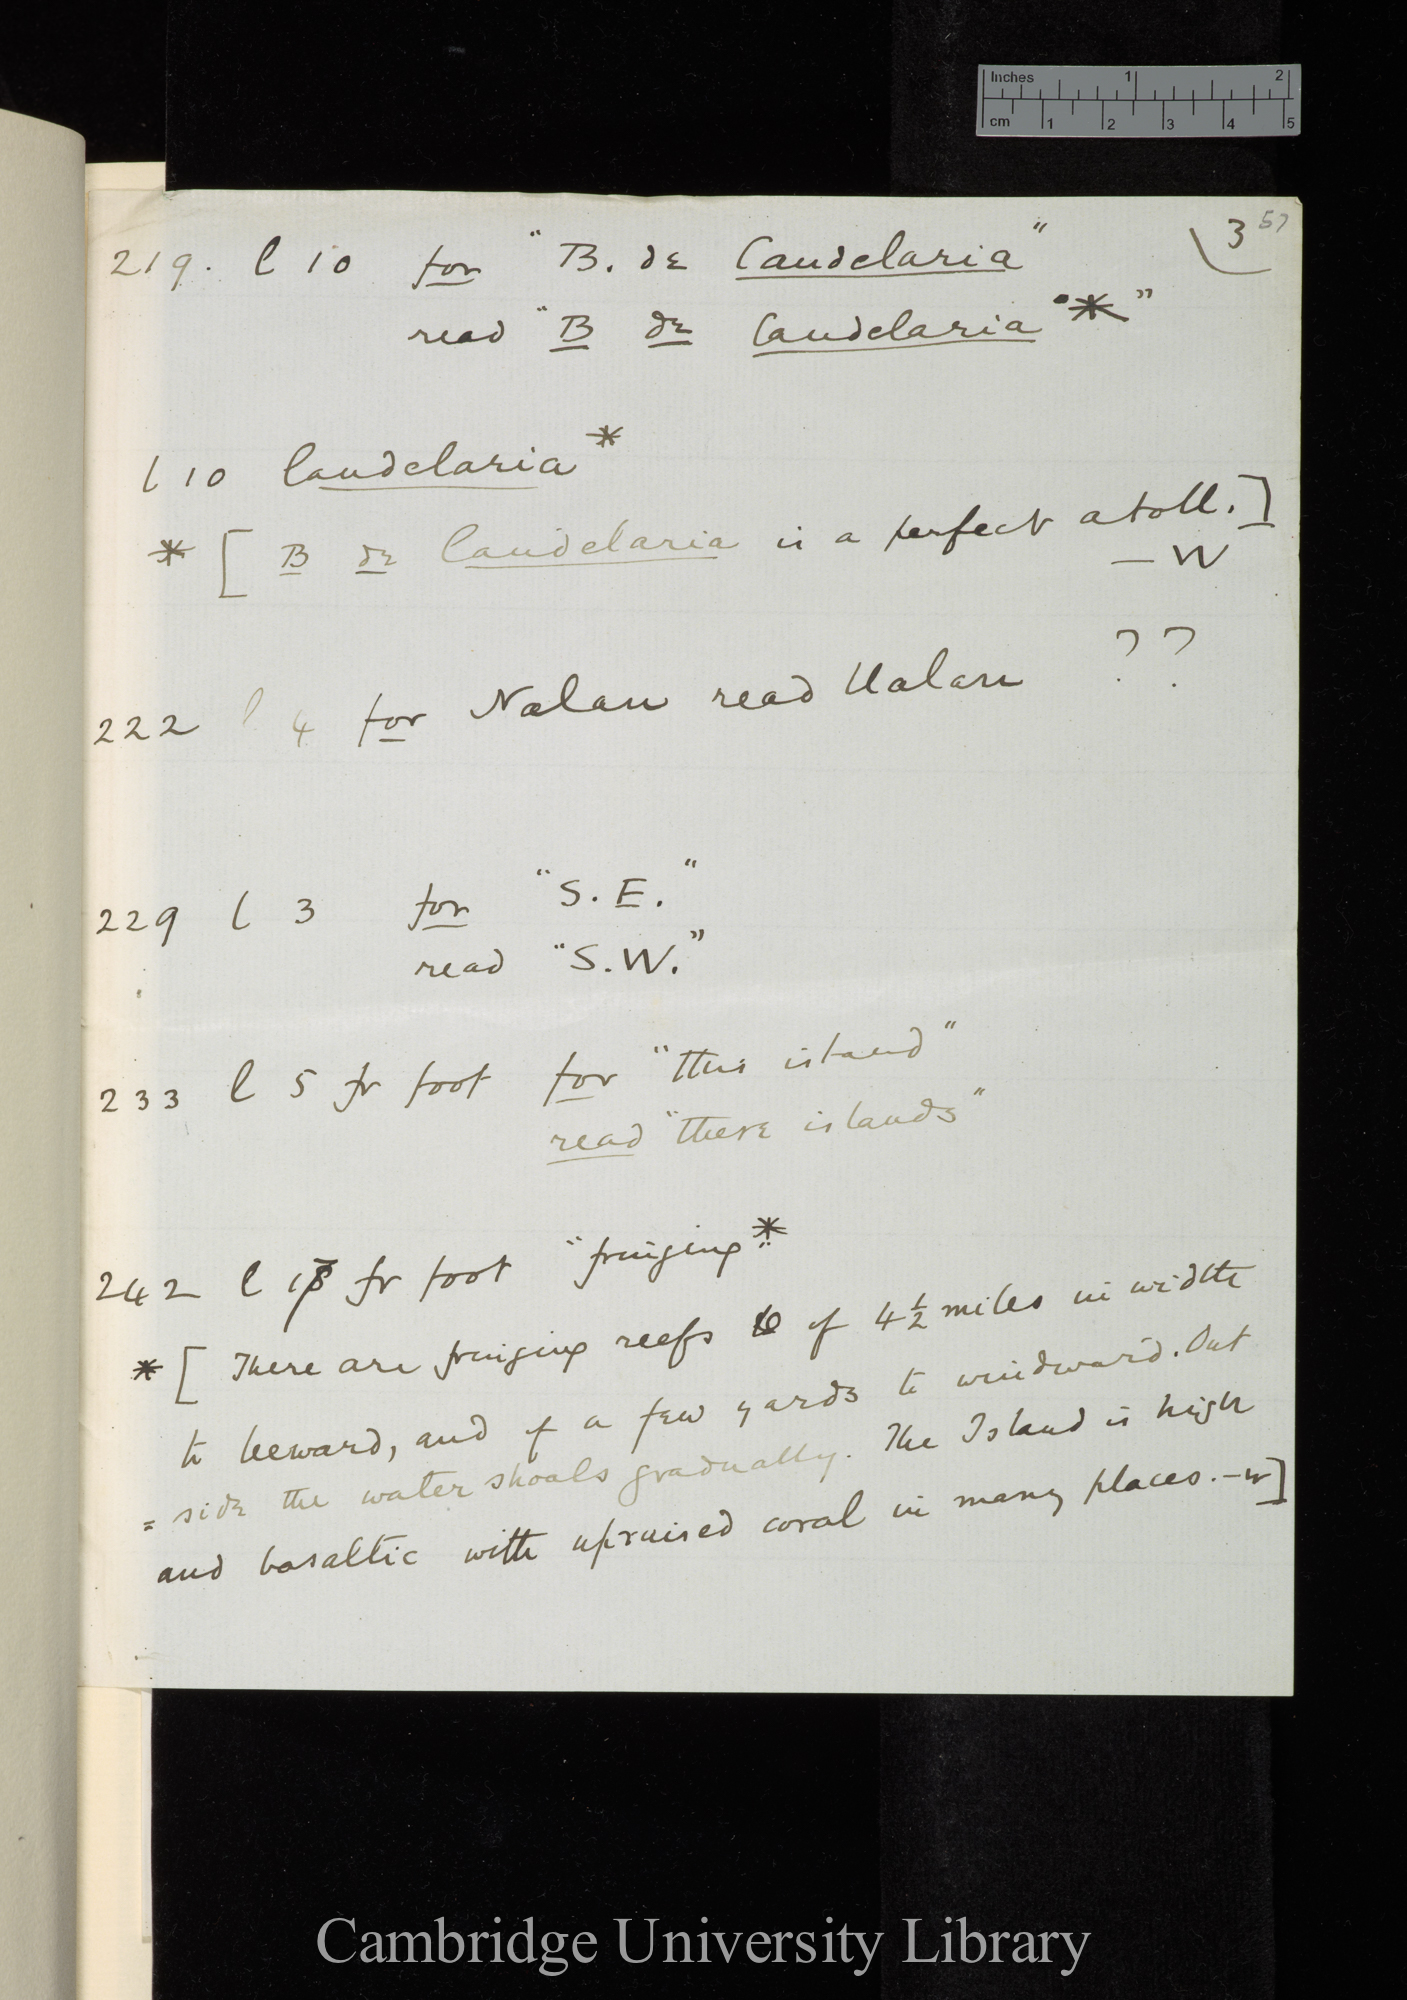 Inches 1 2
cm 1 2 3 4 5
3 57
219. l 10 for "B. de Candelaria"
read "B de Candelaria*"
l 10 Candelaria*
* [B de Candelaria is a perfect atoll.]
— W
222 l 4 for Nalan read Ualan ??
229 l 3 for "S.E."
read "S.W."
233 l 5 fr foot for "this island"
read "these islands"
242 l fr foot "fringing"*
* [There are fringing reefs of 4½ miles in width
to leeward, and of a few yards to windward. Out
= side the water shoals gradually. The Island is high
and basaltic with upraised coral in many places. — W]
Cambridge University Library